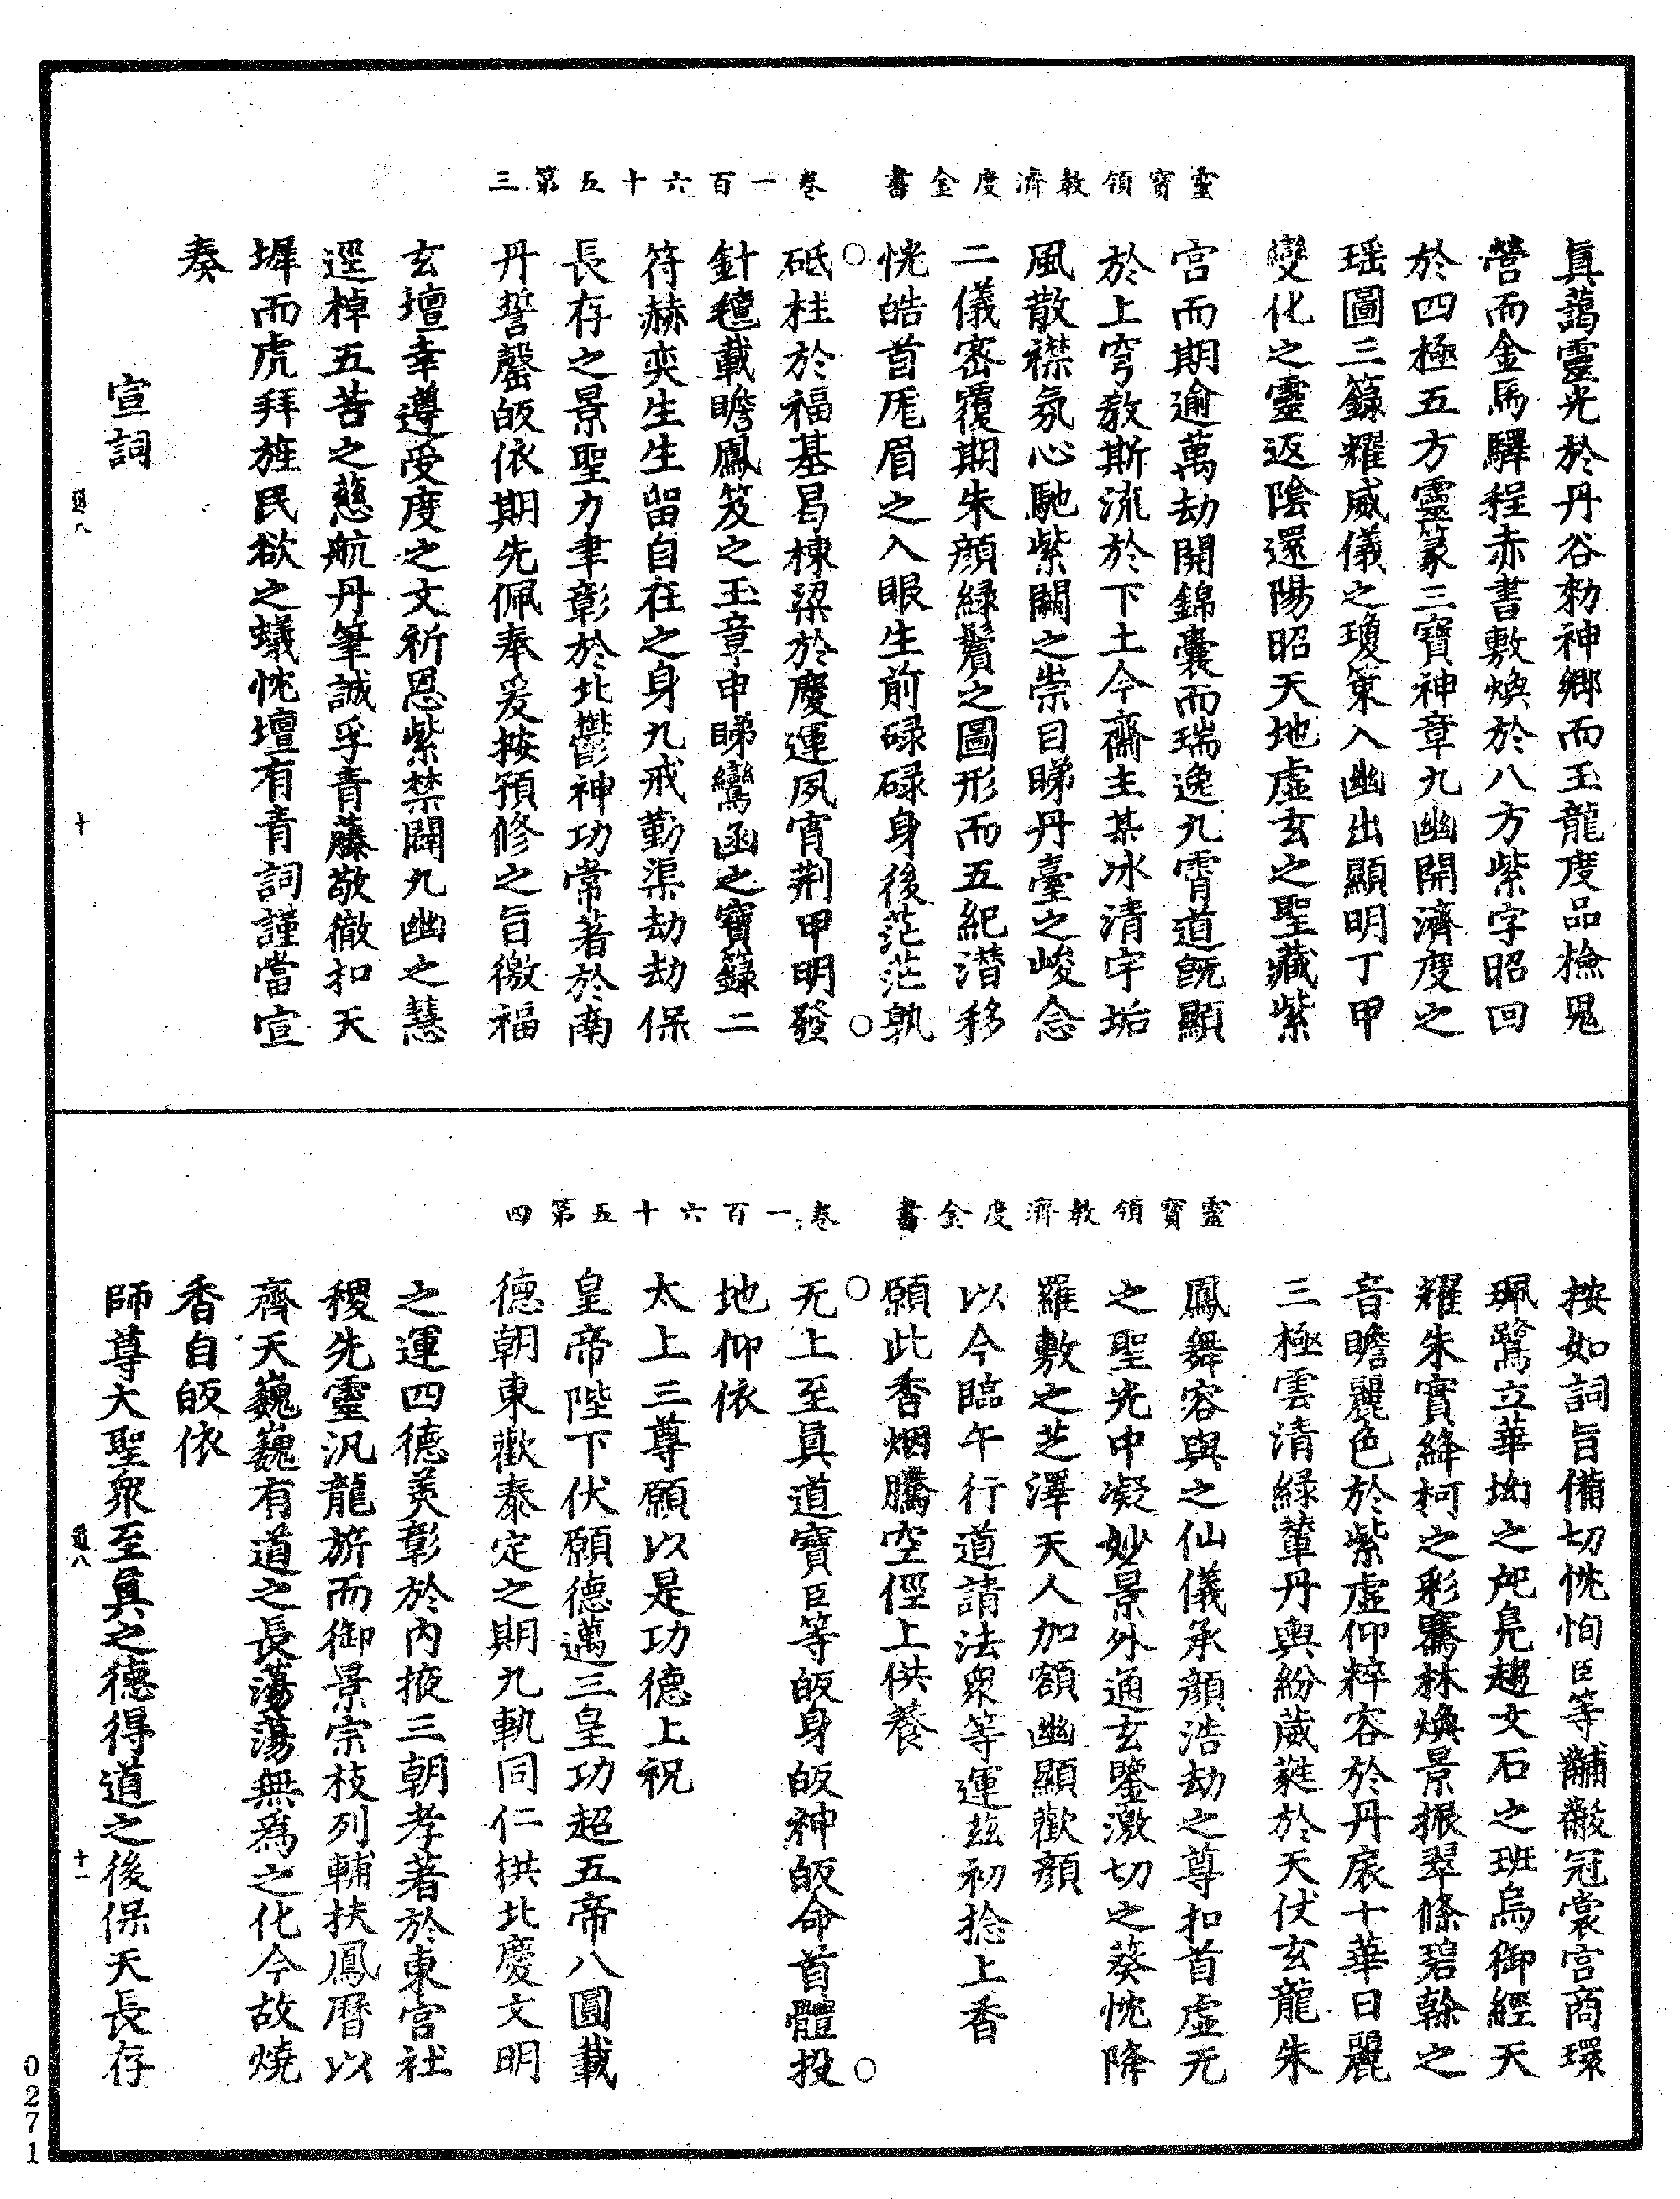 靈寶領教濟度金書 卷一百六十五第三
真藹靈光於丹谷勑神鄉而玉龍度品撿鬼
營而金馬驛程赤書敷煥於八方紫字昭回
於四極五方靈篆三寶神章九幽開濟度之
瑶圖三籙耀威儀之瓊策入幽出顯明丁甲
變化之靈返陰還陽昭天地虛玄之聖藏紫
宮而期逾萬劫開錦囊而瑞逸九霄道旣顯
於上穹教斯流於下土今齋主某冰清宇垢
風散襟氛心馳紫闕之崇目睇丹臺之峻念
二儀密覆期朱顏緑鬢之圖形而五紀潛移
恍皓首厖眉之入眼生前碌碌身後茫茫孰
砥柱於福基曷棟梁於慶運夙宵荆甲明發
針氊載瞻鳳笈之玉章申睇鸞函之寶籙二
符赫奕生生留自在之身九戒勤渠劫劫保
長存之景聖力聿彰於北鬱神功常著於南
丹誓罄皈依期先佩奉爰按預修之旨徼福
玄壇幸遵受度之文祈恩紫禁闢九幽之慧
逕棹五苦之慈航丹筆誠孚青藤敬徹扣天
墀而虎拜旌民欲之蟻忱壇有青詞謹當宣
奏
宣詞
道八
十
靈寶領教濟度金書 卷一百六十五第四
按如詞旨備切忱恂臣等黼黻冠裳宮商環
珮鷺立華坳之戺鳧趨文石之班烏御經天
耀朱實絳柯之彩騫林煥景振翠條碧榦之
音瞻麗色於紫虛仰粹容於丹扆十華日麗
三極雲清緑輦丹輿紛葳蕤於天仗玄龍朱
鳳舞容與之仙儀承顏浩劫之尊扣首虛无
之聖光中凝妙景外通玄鑒激切之葵忱降
羅敷之芝澤天人加額幽顯歡顏
以今臨午行道請法衆等運兹初捻上香
願此香烟騰空徑上供養
无上至真道寶臣等皈身皈神皈命首體投
地仰依
太上三尊願以是功德上祝
皇帝陛下伏願德邁三皇功超五帝八圓載
德朝東歡泰定之期九軌同仁拱北慶文明
之運四德美彰於內掖三朝孝著於東宮社
稷先靈汎龍旂而御景宗枝列輔扶鳳曆以
齊天巍巍有道之長蕩蕩無爲之化今故燒
香自皈依
師尊大聖衆至真之德得道之後保天長存
道八
十一
0271